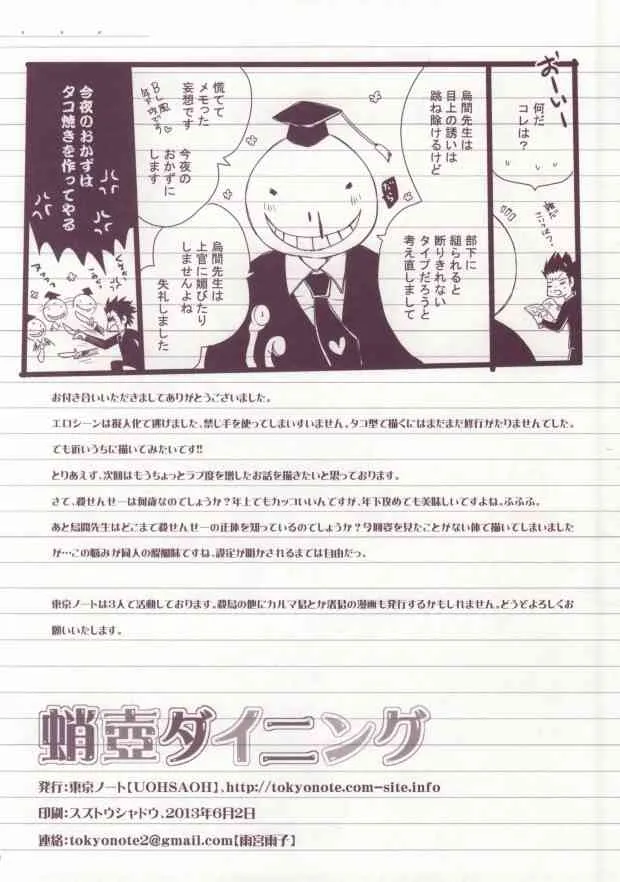 おーいー
何だ
コレは？
誰だ
こいつは？
烏間先生は
目上の誘いは
跳ね除けるけど
だら
部下に
縋られると
断りきれない
タイプだろうと
考え直しまして
慌てて
メモった
妄想です
BL風
年下攻めでっ
今夜の
おかずに
します
烏間先生は
上官に媚びたり
しませんよね
失礼しました
今夜のおかずは
タコ焼きを作ってやる
お付き合いいただきましてありがとうございました。
エロシーンは擬人化で逃げました、禁じ手を使ってしまいすいません。タコ型で描くにはまだまだ修行がたりませんでした。
でも近いうちに描いてみたいです!!
とりあえず、次回はもうちょっとラブ度を増したお話を描きたいと思っております。
さて、殺せんせーは何歳なのでしょうか？年上でもカッコいいんですが、年下攻めでも美味しいですよね。ふふふ。
あと烏間先生はどこまで殺せんせーの正体を知っているのでしょうか？今回姿を見たことがない体で描いてしまいました
が…この悩みが同人の醍醐味ですね、設定が明かされるまでは自由だっ。
東京ノートは3人で活動しております。殺烏の他にカルマ烏とか渚烏の漫画も発行するかもしれません。どうぞよろしくお
願いいたします。
蛸壺ダイニング
発行：東京ノート【UOHSAOH】、http://tokyonote.com-site.info
印刷：スズトウシャドウ、2013年6月2日
連絡：tokyonote2@gmail.com【雨宮雨子】